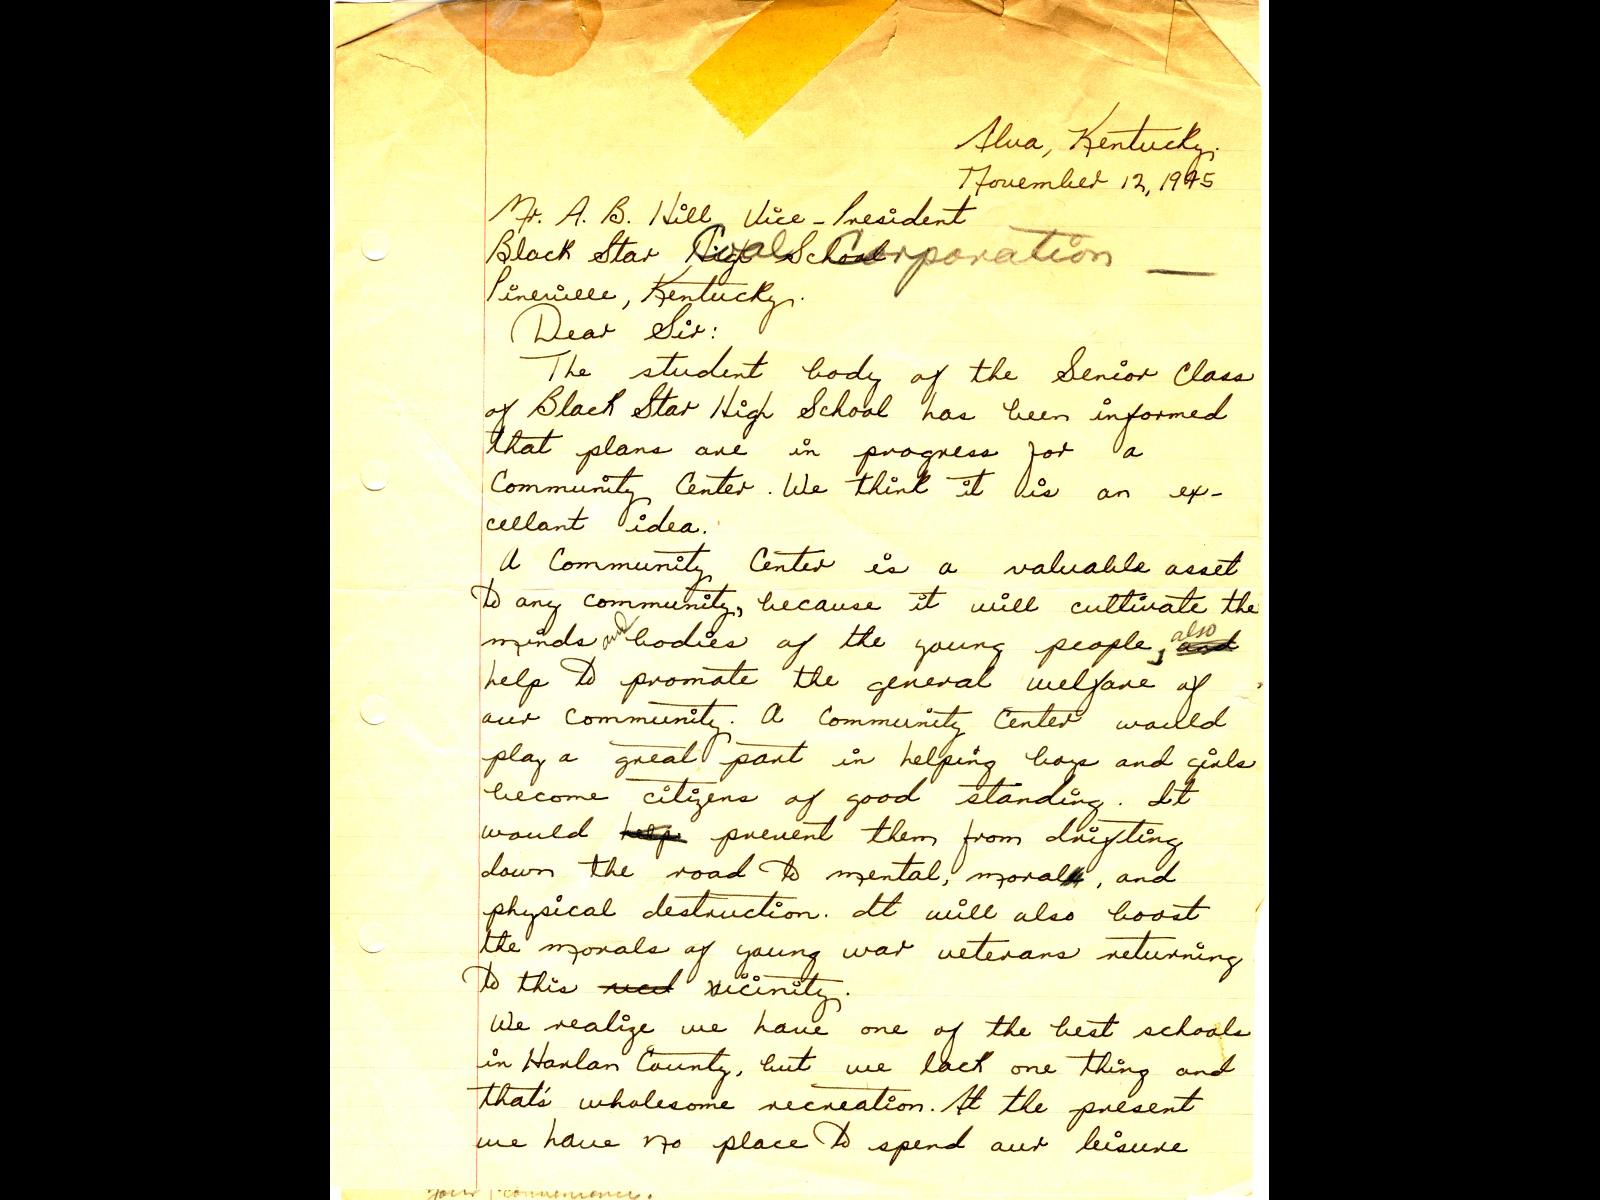 Alva, Kentucky.
November 12, 1945
Mr. A. B. Hill, Vice-President
Black Star Coal Corporation
Pineville, Kentucky.
Dear Sir:
The student body of the Senior Class
of Black Star High School has been informed
that plans are in progress for a
Community Center. We think it is an ex-
cellant idea.
A Community Center is a valuable asset
to any community, because it will cultivate the
minds and bodies of the young people, also
help to promote the general welfare of
our community. A Community Center would
play a great part in helping boys and girls
become citizens of good standing. It
would help prevent them from drifting
down the road to mental, moral, and
physical destruction. It will also boost
the morals of young war veterans returning
to this vicinity.
We realize we have one of the best schools
in Harlan County, but we lack one thing and
that's wholesome recreation. At the present
we have no place to spend our leisure
your convenience.